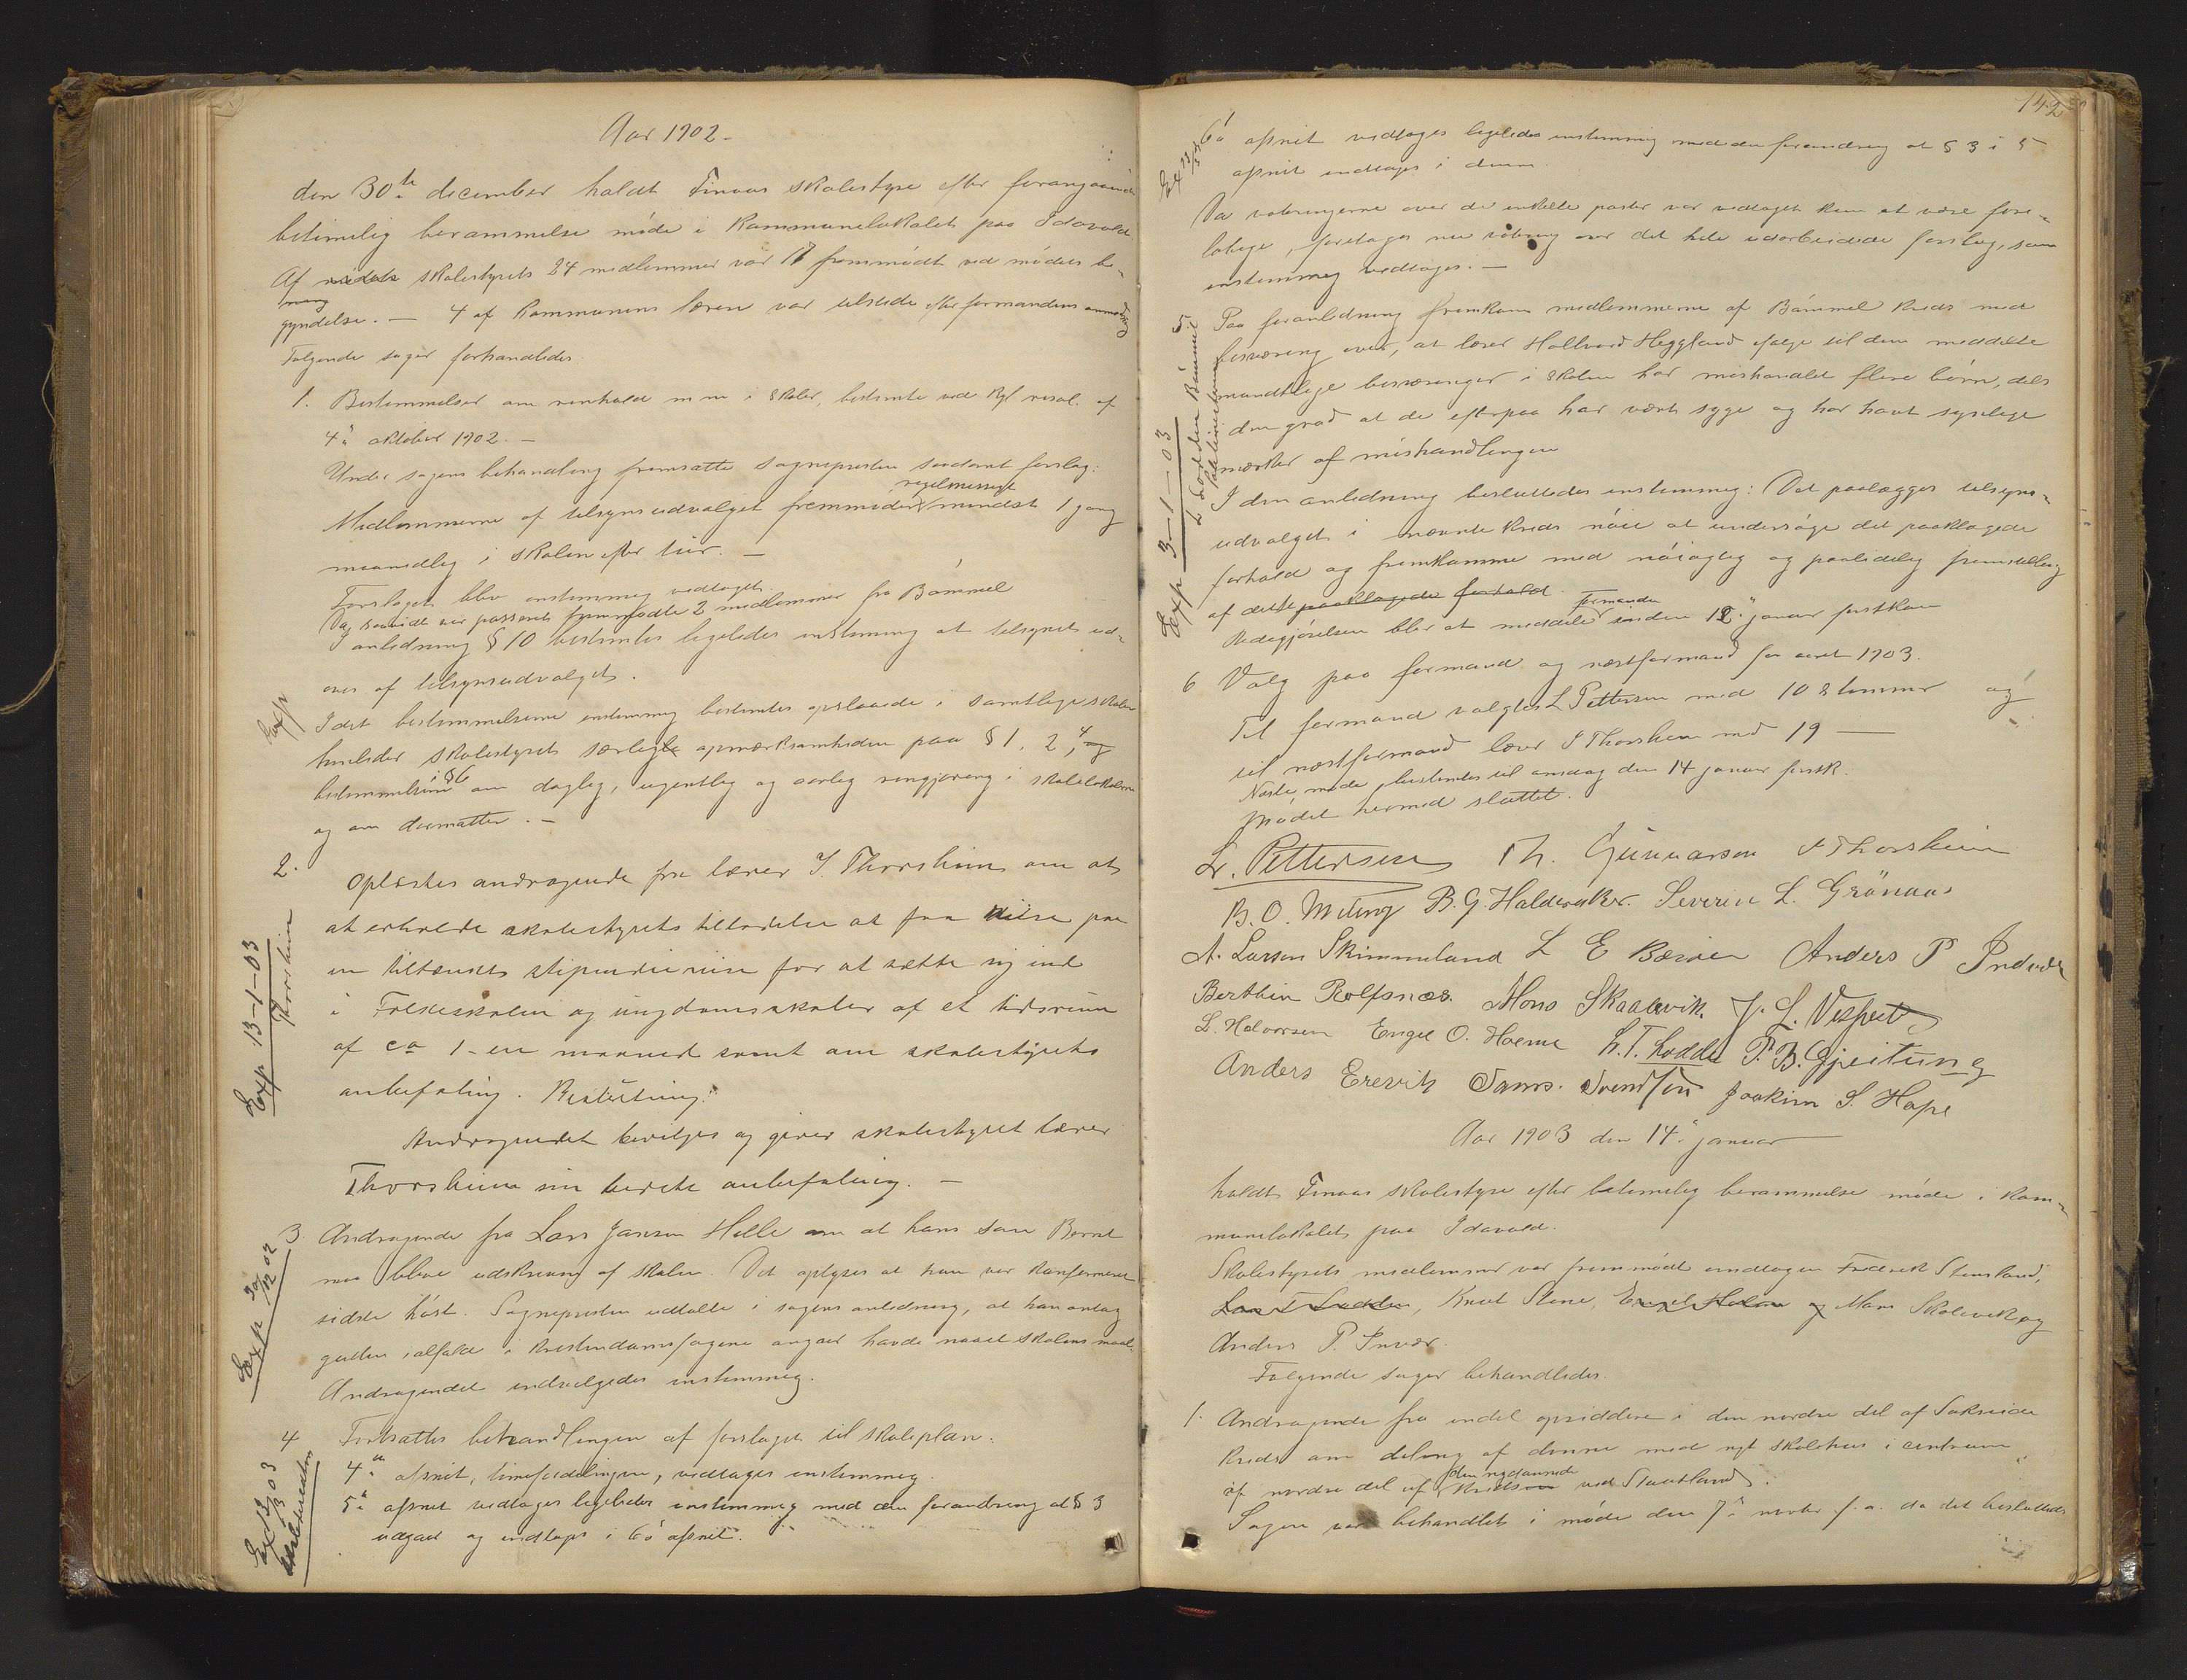 Aar 1902.
den 30te december holdt Finaas skolestyre efter forangaaende
betimelig berammelse möde i Kommunelokalet paa Idavold
Af skolestyrets 24 medlemmer var 17 fremmödt ved mödets be-
gyndelse. — 4 af Kommunens lærere var tilstede efter formandens anmodning
Følgende sager forhandledes
1. Bestemmelser om renhold m m i skoler, bestemte ved Kgl resol. af
4de oktober 1902. —
Under sagens behandling fremsatte sognepresten saadant forslag:
regelmessigt
Medlemmerne af tilsynsudvalget fremmöder mindst 1 gang
maanedlig i skolen efter tur. —
Forslaget blev enstemmig vedtaget.
Da saavidt var passeret fremmødte 2 medlemmer fra Bömmel
I anledning § 10 bestemtes ligeledes enstemmig at tilsynet ud-
öves af tilsynsudvalget.
Exp
Idet bestemmelserne enstemmig bestemtes opslaaede i samtlige skoler
henleder skolestyret særlig opmærksomheden paa § 1, 2, 4 og
bestemmelserne i § 6 om daglig, ugentlig og aarlig rengjøring i skolelokalerne
og om dørmatter. —
2.
Oplæstes andragende fra lærer J. Thorsheim om at
at erholde skolestyrets tilladelse at faa reise paa
en tiltænkt stipendiereise for at sætte sig ind
i Folkeskolen og ungdomsskoler af et tidsrum
af ca 1 en maaned samt om skolestyrets
anbefaling. Beslutning:
Andragendet bevilges og giver skolestyret lærer
Thorsheim sin bedste anbefaling. —
Exp 13-1-03
Thorsheim
3. Andragende fra Lars Jansen Helle om at hans søn Bernt
maa blive udskreven af skolen. Det oplyses at han var konfirmeret
sidste høst. Sognepresten udtalte i sagens anledning, at han antog
gutten ialfald i kristendomsfagene angaar havde naaet skolens maal.
Andragendet indvilgedes enstemmig.
Exp 30/12 02
4 Fortsattes behandlingen af forslaget til skoleplan.
4de afsnit, timefordelingen, vedtages enstemmig.
5te afsnit vedtages ligeledes enstemmig med den forandring at § 3
udgaar og indtages i 6te afsnit.
142
6te afsnit vedtages ligeledes enstemmig med den forandring at § 3 i 5
afsnit indtages i denne
Da voteringerne over de enkelte poster var vedtaget kun at være fore-
løbige, foretages nu votering over det hele udarbeidede forslag, som
enstemmig vedtages. —
5. Paa foranledning fremkom medlemmerne af Bömmel kreds med
besværing over, at lærer Hallvard Heggland ifølge til dem meddelte
mundtlige besværinger i skolen har mishandlet flere börn, dels
i den grad at de efterpaa har vært syge og har havt synlige
mærker af mishandlingen
I den anledning besluttedes enstemmig: Det paalægges tilsyns-
udvalget i nævnte kreds nöie at undersöge det paaklagede
forhold og fremkomme med nöiagtig og paalidelig fremstilling
af dette paaklagede forhold.
formanden
Redegjörelsen blir at meddele inden 12te januar førstkom
Exp 3-1-03
6 Valg paa formand og næstformand for aaret 1903.
Til formand valgtes L Pettersen med 10 stemmer og
til næstformand lærer J Thorsheim med 19 —
Næste möde bestemtes til onsdag den 14 januar førstk.
Mödet hermed sluttet.
L. Pettersen Th. Gunnarson J Thorsheim
B. O. Meling B. G. Haldorsker. Severin L. Grönaas
A. Larsen Skimmeland L E Bæröen Anders P Indvær
Berthin Rolfsnæs. Mons Skaalevik J. L. Vespest
L. Halvorsen Engel O. Holme L. T. Lodde P. B. Gjeitung
Anders Erevik Joakim S. Hope
Aar 1903 den 14de januar
holdt Finaas skolestyre efter betimelig berammelse möde i Kom-
munelokalet paa Idavold.
Skolestyrets medlemmer var fremmödt undtagen Fredrik Stensland,
Lars T Lodden, Knut Stene, Engel Holme og Mons Skalevik og
Anders P. Invær.
Følgende sager behandledes.
1. Andragende fra endel opsiddere i den nordre del af Sakseide
kreds om deling af denne med nyt skolehus i centrum
den nydannede
af nordre del af kredsen ved Stautland.
Sagen var behandlet i möde den 7de novbr f. a. da det besluttedes